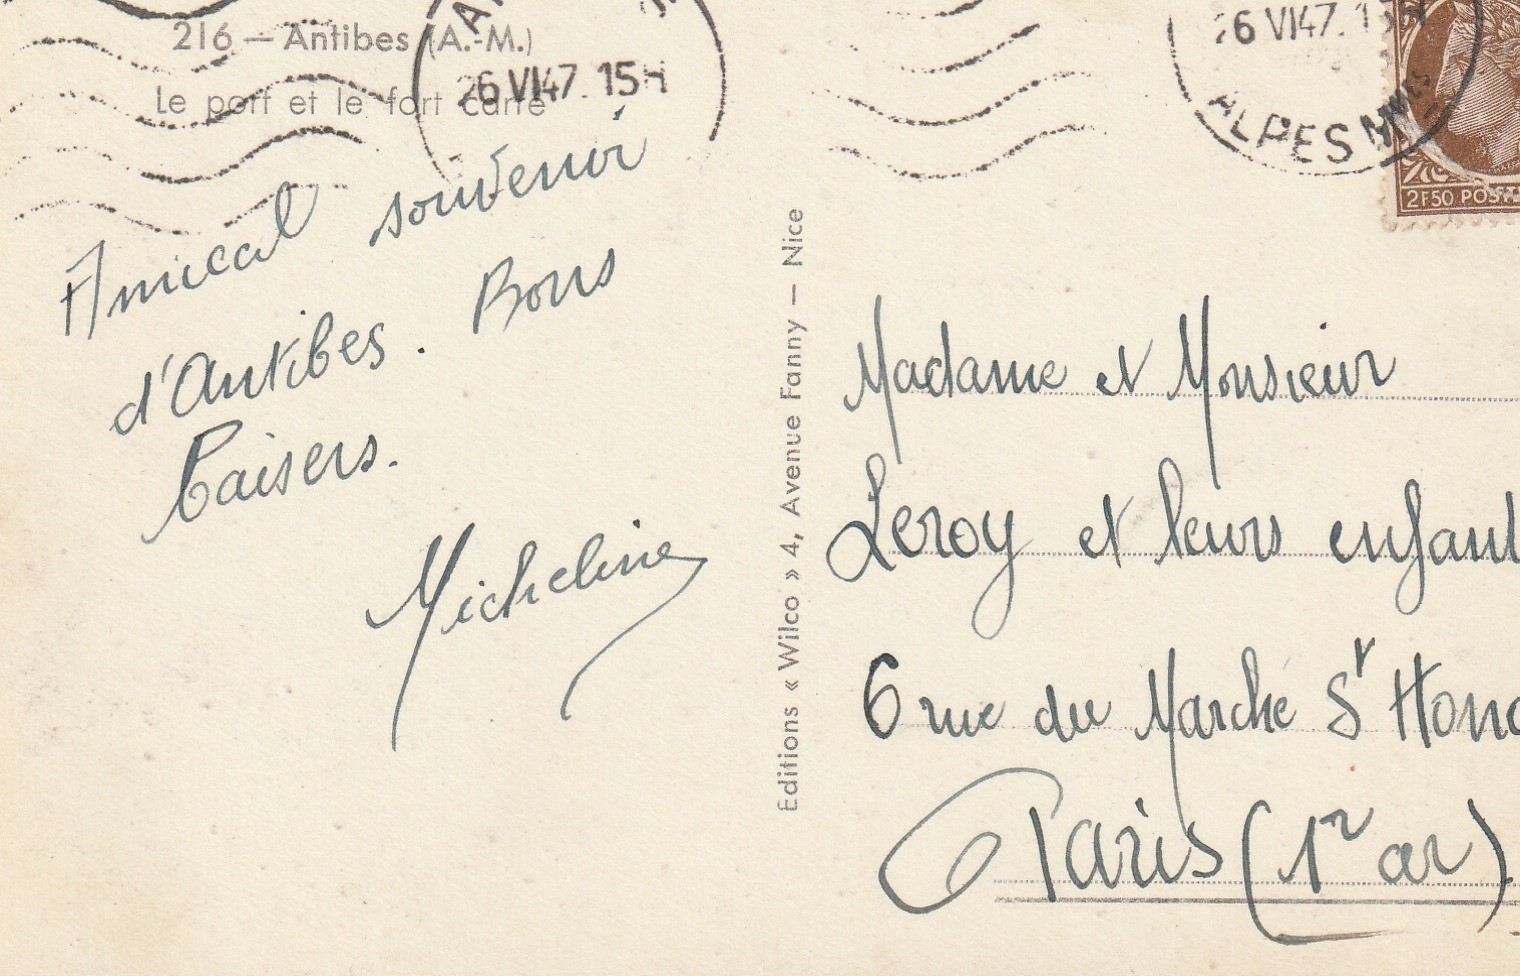 216 — Antibes (A.-M.)
Le port et le fort carré
26 VI 47. 15H
Amical souvenir
d'Antibes. Bons
baisers.
Micheline
Editions « Wilco » 4, Avenue Fanny — Nice
26 VI 47. 15H
ALPES MMES
2F50 POSTE
Madame et Monsieur
Leroy et leurs enfant
6 rue du Marché St Hono
Paris (1er ar).